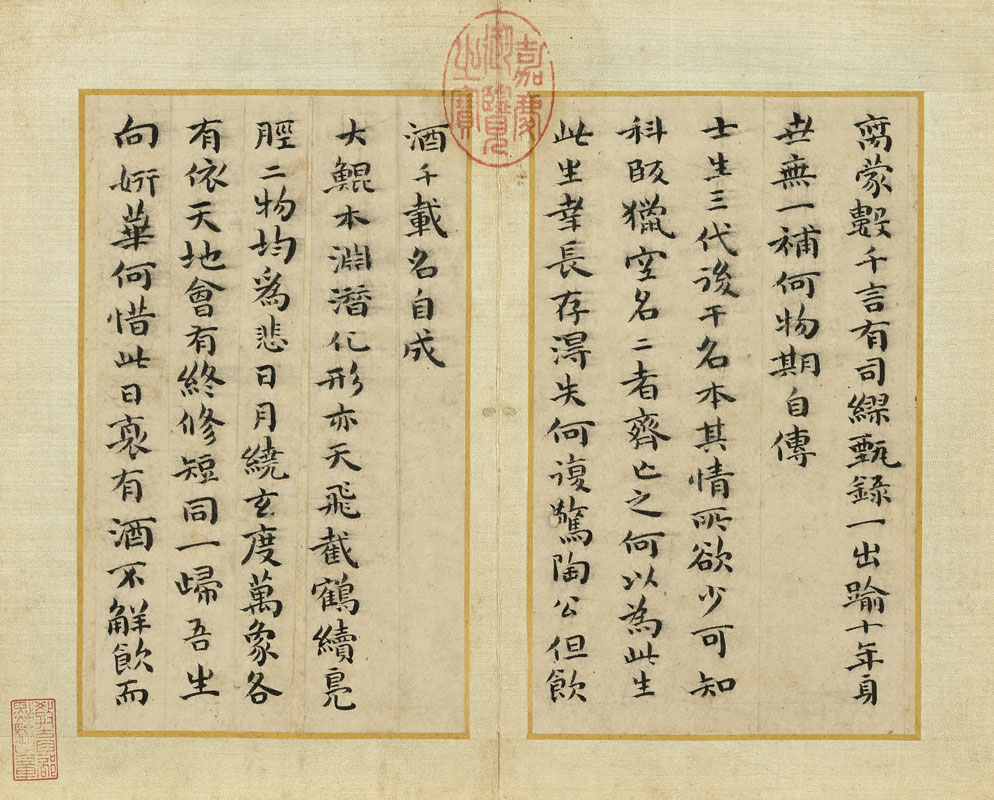 蒙數千言有司繆甄錄一出踰十年身
世無一補何物期自傳
士生三代後干名本其情所欲少可知
科段獵空名二者齊亡之何以為此生
此生幸長存得失何復驚陶公但飲
嘉慶御覽之寶
酒千載名自成
大鯤本淵潛化形亦天飛截鶴續鳧
脛二物均爲悲日月繞玄度萬象各
有依天地會有終修短同一歸吾生
向妍華何惜此日衰有酒不解飲而